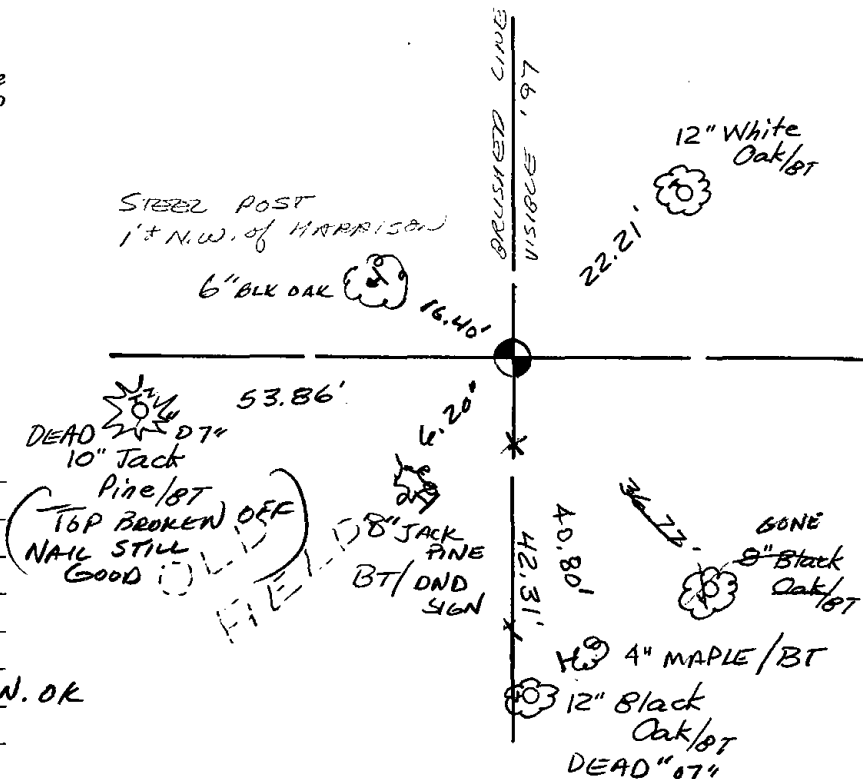 BRUSHED LINE
VISIBLE '97
12" White
Oak/BT
22.21'
STEEL POST
1'± N.W. of HARRISON
6" BLK OAK
16.40'
53.86'
6.20'
DEAD 07"
10" Jack
Pine/BT
(TOP BROKEN OFF
NAIL STILL
GOOD)
OLD
FIELD
8" JACK
PINE
BT/DND
SIGN
42.31'
40.80'
36.77'
GONE
8" Black
Oak/BT
4" MAPLE/BT
12" Black
Oak/BT
DEAD "07"
N. OK